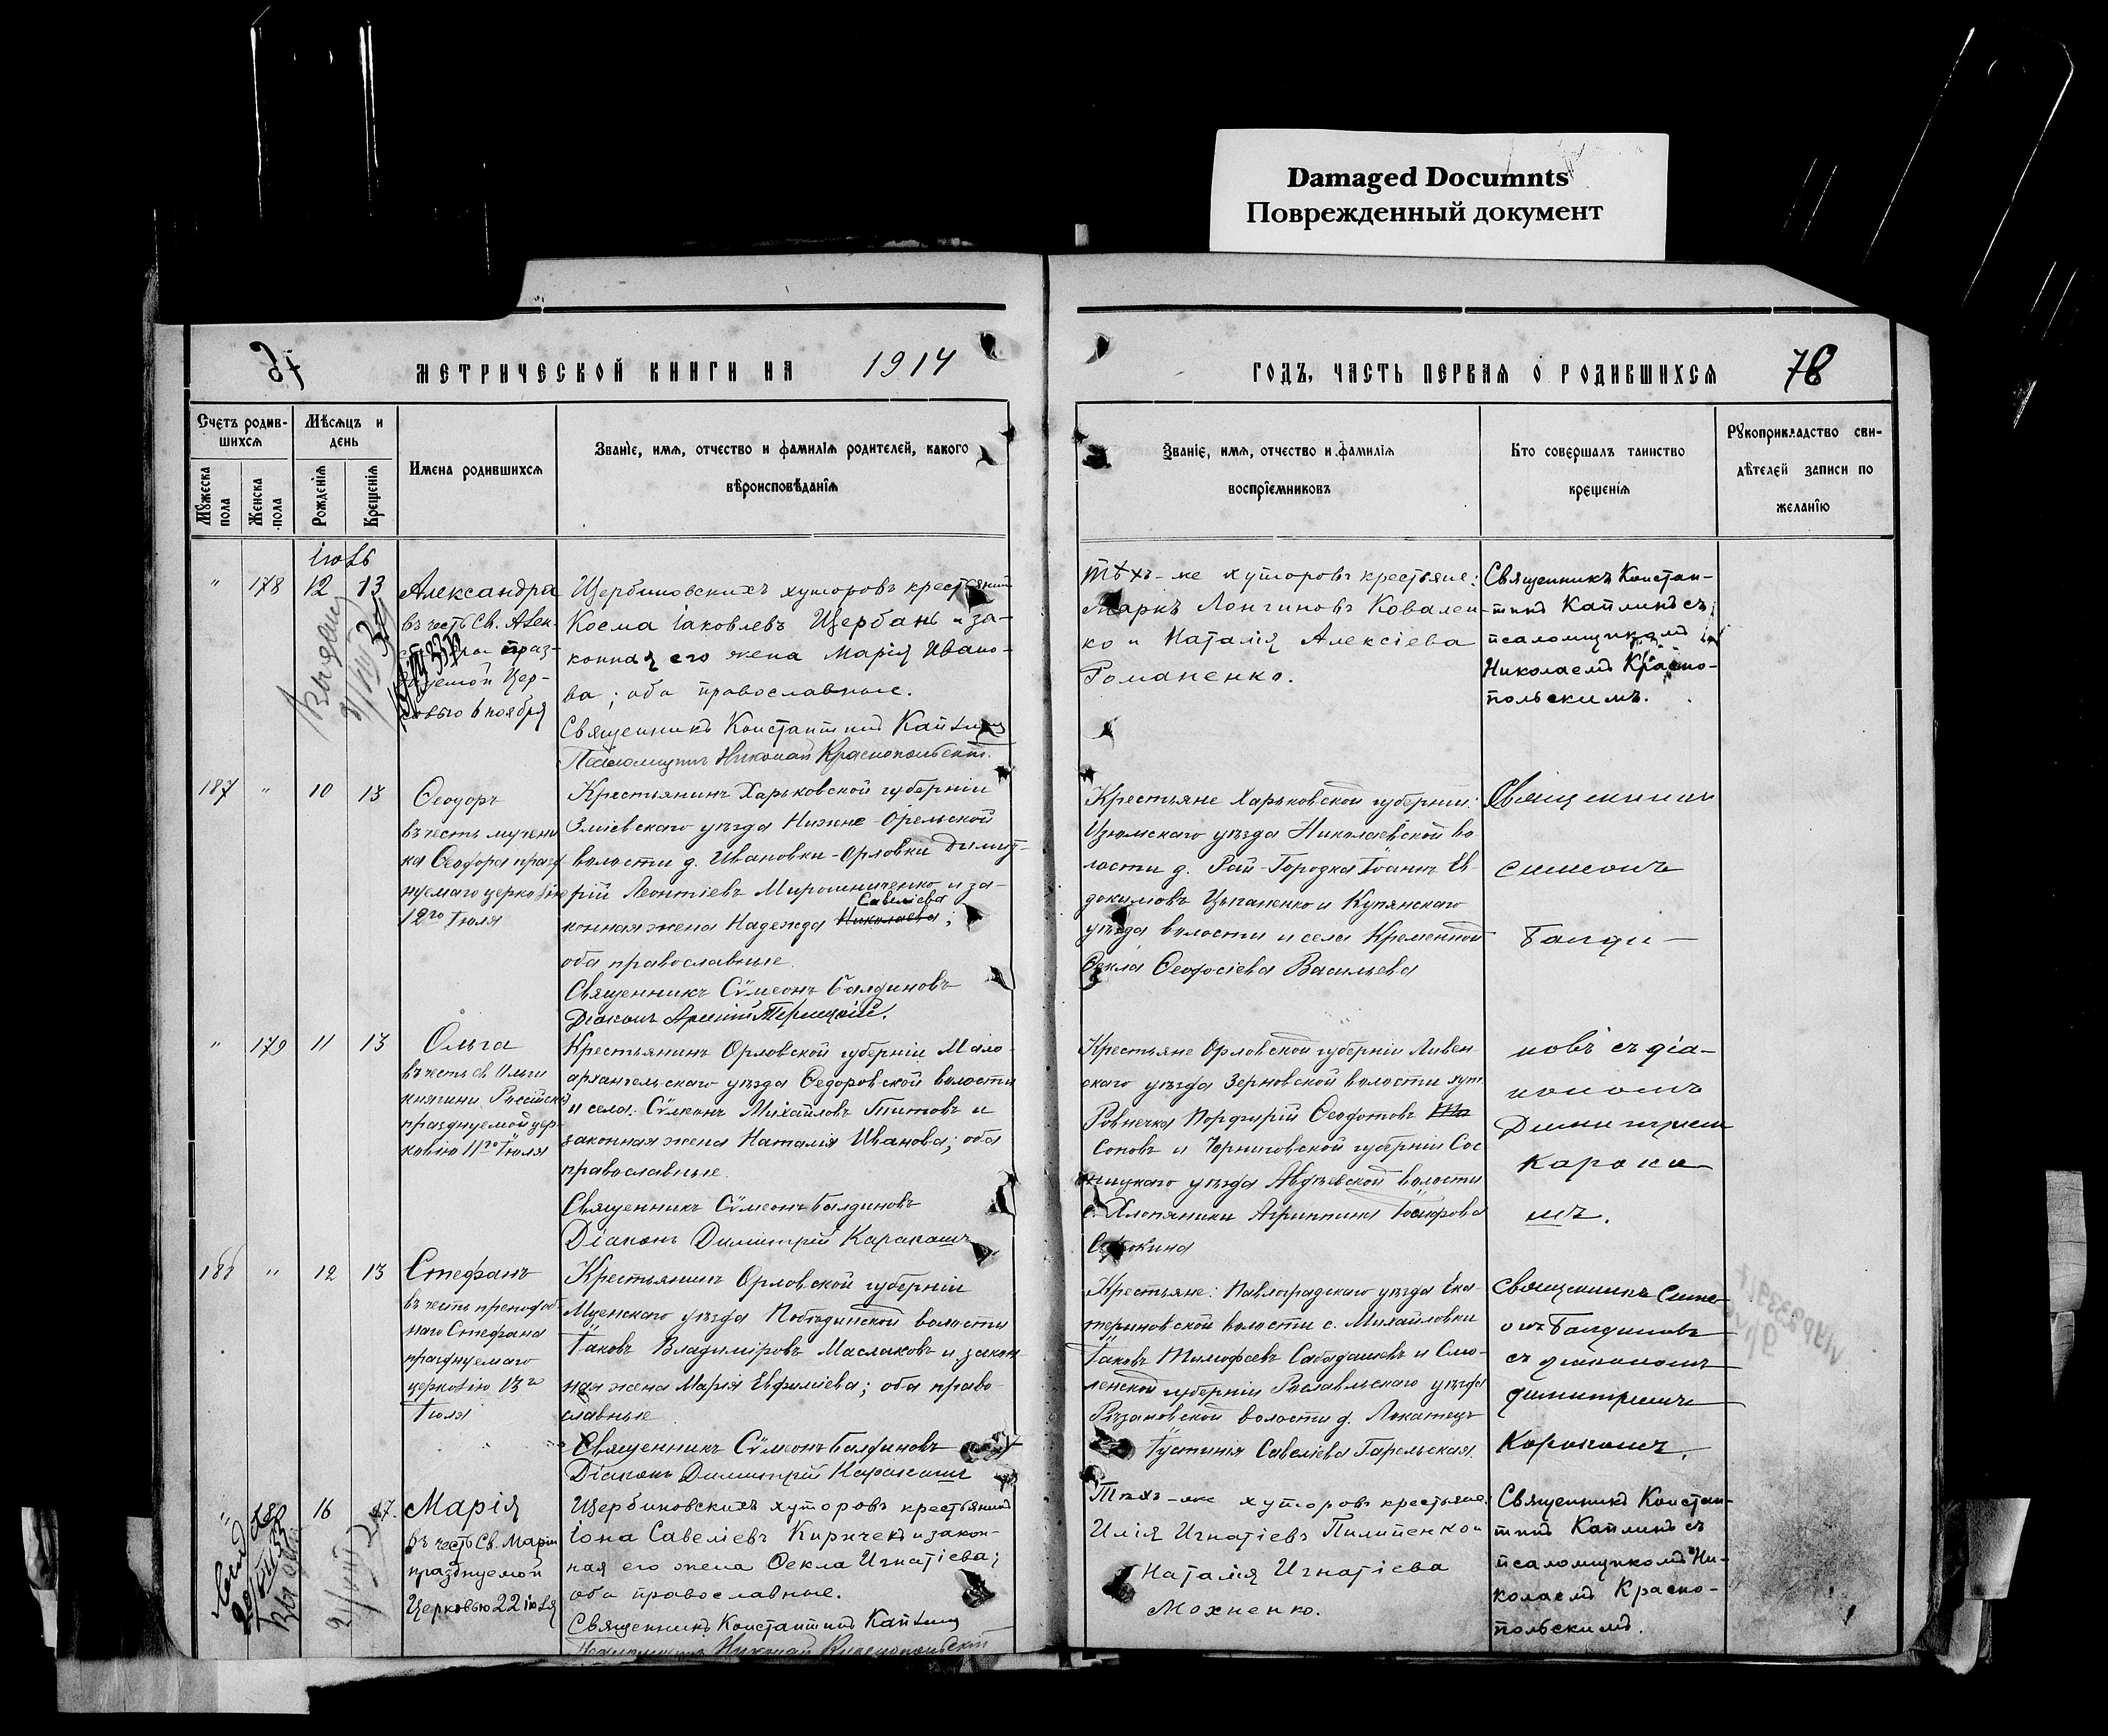 Damaged Documnts
Поврежденный документ
МЕТРИЧЕСКОЙ КНИГИ НА 1914
ГОДЪ, ЧАСТЬ ПЕРВАЯ О РОДИВШИХСЯ 78
Счетъ родив-
шихся
Мужеска
пола
Женска
пола
Мѣсяцъ и
день
Рожденія
Крещенія
Имена родившихся
Званіе, имя, отчество и фамилія родителей, какого
вѣроисповѣданія
Званіе, имя, отчество и фамилія
воспріемниковъ
Кто совершалъ таинство
крещенія
Рукоприкладство сви-
дѣтелей записи по
желанію
" 178 12 13
Александра
въ честь Св. Алек-
праз-
Цер-
ковью 6 ноября
Щербиновскихъ хуторовъ крестьянинъ
Косма Іаковлевъ Щербань и за-
конная его жена Марія Ивано-
ва; оба православные.
Священникъ Константинъ Каплинъ
Псаломщикъ Николай Краснопольскій.
Тѣхъ-же хуторовъ крестьяне:
Маркъ Лонгиновъ Ковален-
ко и Наталія Алексіева
Романенко.
Священникъ Констан-
тинъ Каплинъ съ
псаломщикомъ
Николаемъ Красно-
польскимъ.
187 " 10 13
Ѳеодоръ
въ честь мучени
ка Ѳеодора празд
нуемаго церковію
12го Іюля
Крестьянинъ Харьковской губерніи
Зміевскаго уѣзда Нижне-Орельской
волости д. Ивановки-Орловки Димит-
рій Леонтіевъ Мирошниченко и за-
Савеліева
конная жена Надежда Николаева;
оба православные.
Священникъ Сѵмеонъ Балдиновъ
Діаконъ
Крестьяне Харьковской губерніи:
Изюмскаго уѣзда Николаевской во
лости д. Рай-Городка Іоаннъ Ев-
докимовъ Цыганенко и Купянскаго
уѣзда волости и села Кременной
Ѳекла Ѳеодосіева Васильева
Священникъ
Симеонъ
Балди-
" 179 11 13
Ольга
въ честь св. Ольги
княгини Россійской
празднуемой цер-
ковію 11го Іюля
Крестьянинъ Орловской губерніи Мало-
архангельскаго уѣзда Ѳедоровской волости
и села: Сѵмеонъ Михайловъ Титовъ и
законная жена Наталія Иванова; оба
православные.
Священникъ Сѵмеонъ Балдиновъ
Діаконъ Димитрій Каракашъ
Крестьяне Орловской губерніи Ливен-
скаго уѣзда Зерновской волости хут.
Ровнечка Порфирій Ѳеодотовъ
Соповъ и Черниговской губерніи Сос
ницкаго уѣзда Авдѣевской волости
с. Хлопяники Агриппина
новъ съ діа-
кономъ
Димитріемъ
Карака-
шъ.
188 " 12 13
Стефанъ
въ честь преподоб-
наго Стефана
празднуемаго
церковію 13го
Іюля
Крестьянинъ Орловской губерніи
Мценскаго уѣзда волости
Іаковъ Владиміровъ Маслаковъ и закон
ная жена Марія Евфиміева; оба право-
славные
Священникъ Сѵмеонъ Балдиновъ
Діаконъ Димитрій Каракашъ
Крестьяне: Павлоградскаго уѣзда Ека-
териновской волости с. Михайловки
Іаковъ Тимофеевъ и Смо-
ленской губерніи Рославльскаго уѣзда
волости д.
Іустинія Савеліева
Священникъ Симе-
онъ Балдиновъ
съ діакономъ
Димитріемъ
Каракашъ.
" 16 17.
Марія
въ честь Св. Маріи
празднуемой
Церковью 22 іюля
Щербиновскихъ хуторовъ крестьянинъ
Іона Савеліевъ Киричекъ и закон-
ная его жена Ѳекла Игнатіева;
оба православные.
Священникъ Константинъ Каплинъ
Псаломщикъ Николай Краснопольскій
Тѣхъ-же хуторовъ крестьяне:
Илія Игнатіевъ Пилипенко и
Наталія Игнатіева
Мохненко.
Священникъ Констан-
тинъ Каплинъ съ
псаломщикомъ Ни-
колаемъ Красно-
польскимъ.